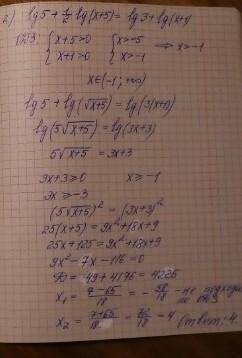 2) lg5 + 1/2 lg(x+5) = lg3 + lg(x+1)
ОДЗ: { x+5>0 { x>-5 ⇒ x>-1
x+1>0 x>-1
x∈(-1; +∞)
lg5 + lg(√x+5) = lg(3(x+1))
lg(5√x+5) = lg(3x+3)
5√x+5 = 3x+3
3x+3≥0 x≥-1
3x≥-3
(5√x+5)² = (3x+3)²
25(x+5) = 9x²+18x+9
25x+125 = 9x²+18x+9
9x²-7x-116=0
D = 49+4176 = 4225
x₁ = 7-65/18 = -58/18 - не подходит по ОДЗ
x₂ = 7+65/18 = 72/18 = 4 Ответ: 4.